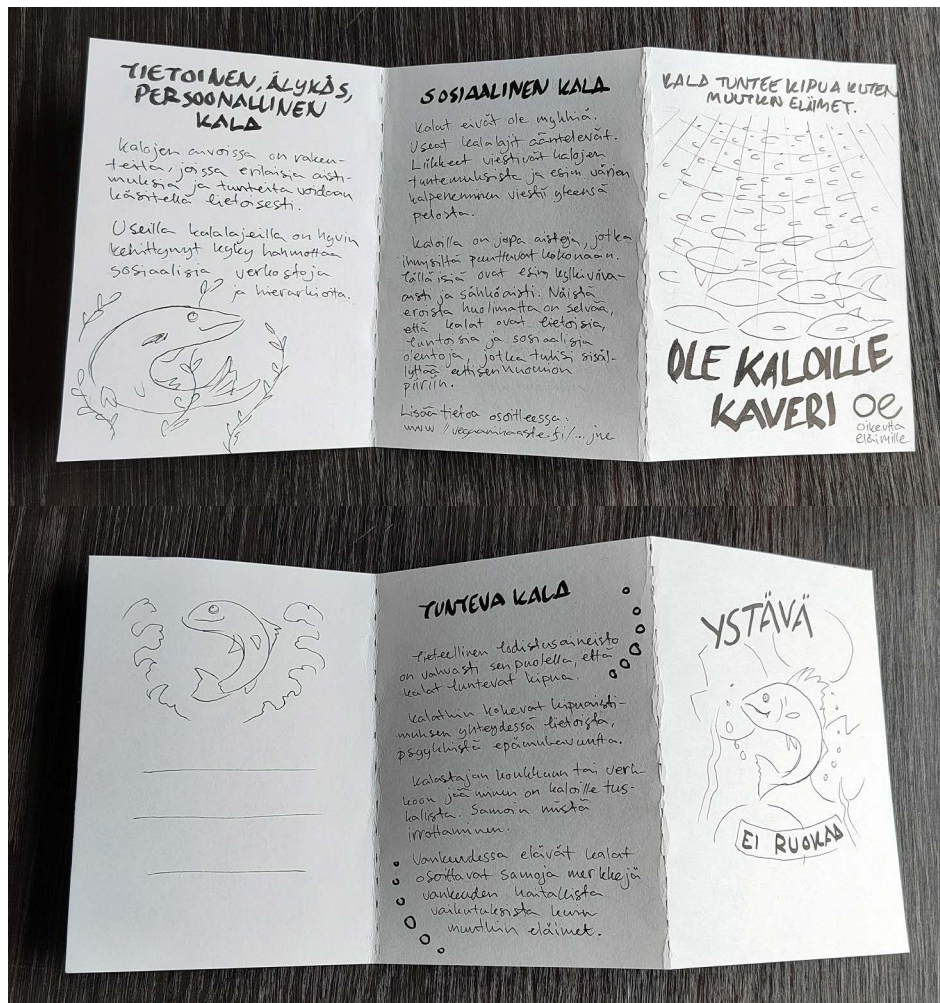 TIETOINEN, ÄLYKÄS,
PERSOONALLINEN
KALA
Kalojen aivoissa on raken-
teita, joissa erilaisia aisti-
muksia ja tunteita voidaan
käsitellä tietoisesti.
Useilla kalalajeilla on hyvin
kehittynyt kyky hahmottaa
sosiaalisia verkostoja
ja hierarkioita.
SOSIAALINEN KALA
Kalat eivät ole mykkiä.
Useat kalalajit ääntelevät.
Liikkeet viestivät kalojen
tuntemuksista ja esim värien
kalpeneminen viestii yleensä
pelosta.
Kaloilla on jopa aisteja, jotka
ihmisiltä puuttuvat kokonaan.
Tälläisiä ovat esim kylkiviiva-
aisti ja sähköaisti. Näistä
eroista huolimatta on selvää,
että kalat ovat tietoisia,
tuntoisia ja sosiaalisia
olentoja, jotka tulisi sisäl-
lyttää eettisen huomion
piiriin.
Lisää tietoa osoitteessa:
www//vegaanihaaste.fi/...jne
KALA TUNTEE KIPUA KUTEN
MUUTKIN ELÄIMET.
OLE KALOILLE
KAVERI
oe
oikeutta
eläimille
TUNTEVA KALA
Tieteellinen todistusaineisto
on vahvasti sen puolella, että
kalat tuntevat kipua.
Kalatkin kokevat kipuaisti-
muksen yhteydessä tietoista,
psyykkistä epämukavuutta.
Kalastajan koukkuun tai verk-
koon jääminen on kaloille tus-
kallista. Samoin niistä
irrottaminen.
Vankeudessa elävät kalat
osoittavat samoja merkkejä
vankeuden haitallisista
vaikutuksista kuin
muutkin eläimet.
YSTÄVÄ
EI RUOKAA